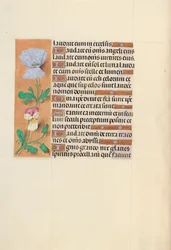 laudate eum in excelsis
Laudate eu omis angeli eius
laudate eum omis virtutes eius
Laudate eu sol et luna
eum omis stelle et lumen
Laudate eu celi celorum et
aque que super celos sunt laudent
nomen domini
Quia ipse dixit et facta sunt ipse
mandavit et creata sunt
Statuit ea in eternum et in
seculum seculi preceptum posuit et
non preteribit
Laudate dominum de terra
dracones et omis abyssi
Ignis grando nix glacies
spiritus procellarum que faciunt